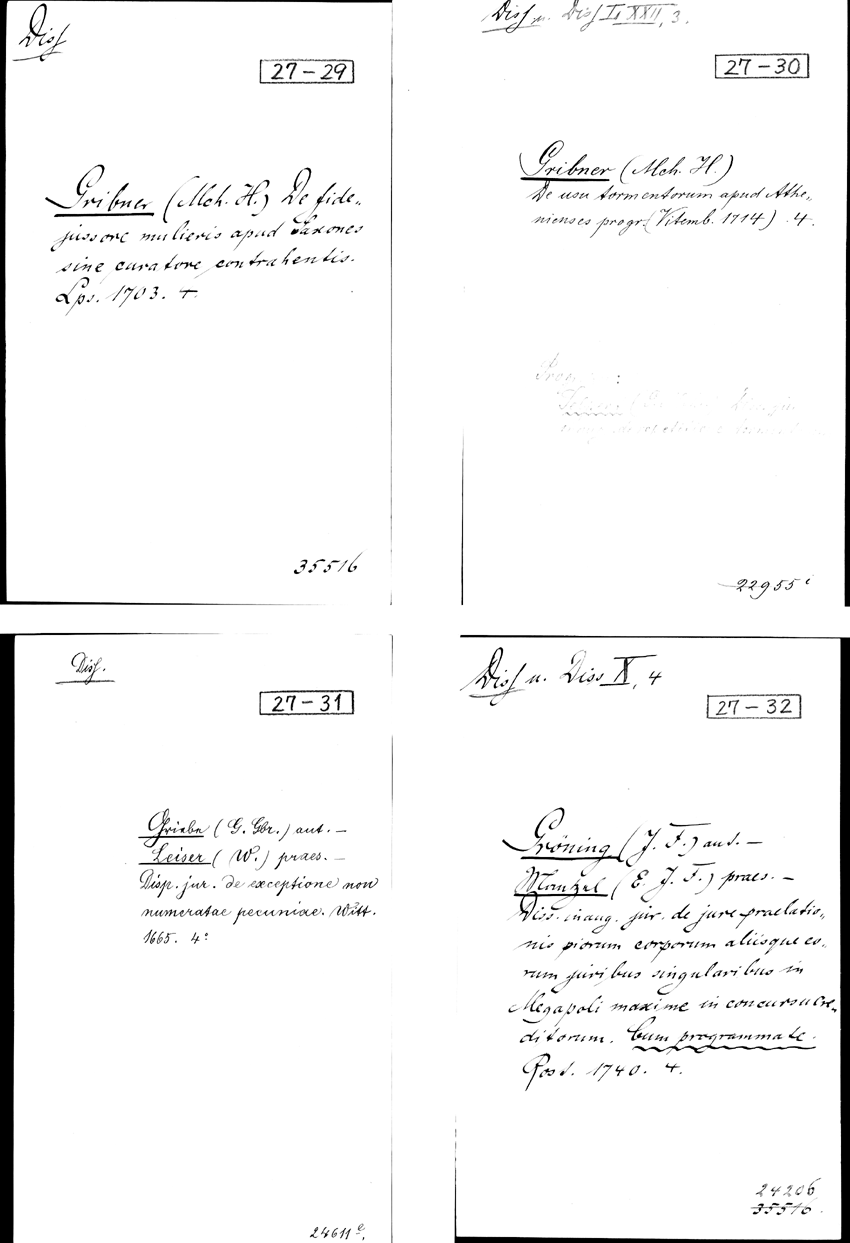 Diss
27-29
Gribner (Mch. H.) De fide-
jussore mulieris apud Saxones
sine curatore contrahentis.
Lps. 1703. 4.
35516
Diss u. Diss L XXII, 3.
27-30
Gribner (Mch. H.)
De usu tormentorum apud Athe-
nienses progr. (Vitemb. 1714) . 4.
22955 i
Diss.
27-31
Griebe (G. Gbr.) aut. —
Leiser (W.) praes. —
Disp. jur. de exceptione non
numeratae pecuniae. Witt.
1665. 4º
24611 e.
Diss u. Diss X, 4
27-32
Gröning (J. F.) aut. —
Mantzel (E. J. F.) praes. —
Diss. inaug. jur. de jure praelatio-
nis piorum corporum aliisque eo-
rum juribus singularibus in
Megapoli maxime in concursu cre-
ditorum. Cum programmate.
Rost. 1740. 4.
24206
35516